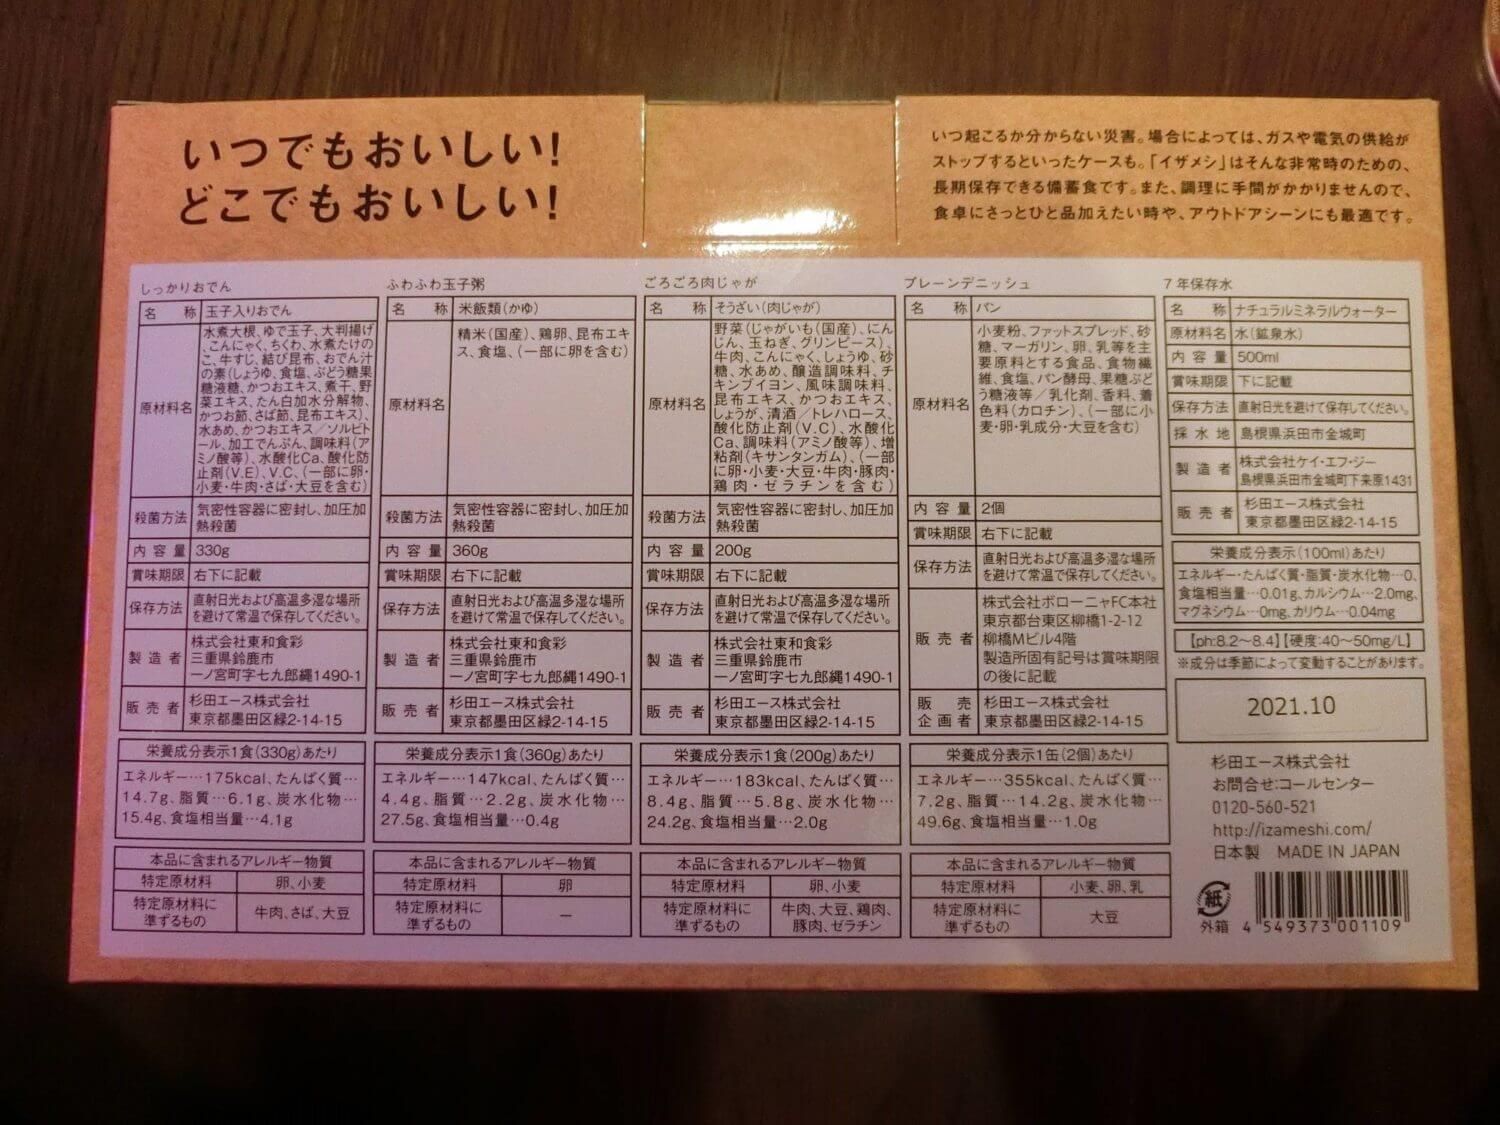 いつでもおいしい!
どこでもおいしい!
いつ起こるか分からない災害。場合によっては、ガスや電気の供給が
ストップするといったケースも。「イザメシ」はそんな非常時のための、
長期保存できる備蓄食です。また、調理に手間がかかりませんので、
食卓にさっとひと品加えたい時や、アウトドアシーンにも最適です。
しっかりおでん
名称 玉子入りおでん
原材料名
水煮大根、ゆで玉子、大判揚げ
、こんにゃく、ちくわ、水煮たけの
こ、牛すじ、結び昆布、おでん汁
の素(しょうゆ、食塩、ぶどう糖果
糖液糖、かつおエキス、煮干、野
菜エキス、たん白加水分解物、
かつお節、さば節、昆布エキス)、
水あめ、かつおエキス/ソルビト
ール、加工でんぷん、調味料(ア
ミノ酸等)、水酸化Ca、酸化防
止剤(V.E)、V.C、(一部に卵・
小麦・牛肉・さば・大豆を含む)
殺菌方法 気密性容器に密封し、加圧加
熱殺菌
内容量 330g
賞味期限 右下に記載
保存方法 直射日光および高温多湿な場所
を避けて常温で保存してください。
製造者 株式会社東和食彩
三重県鈴鹿市
一ノ宮町字七九郎縄1490-1
販売者 杉田エース株式会社
東京都墨田区緑2-14-15
栄養成分表示1食(330g)あたり
エネルギー…175kcal、たんぱく質…
14.7g、脂質…6.1g、炭水化物…
15.4g、食塩相当量…4.1g
本品に含まれるアレルギー物質
特定原材料 卵、小麦
特定原材料に
準ずるもの 牛肉、さば、大豆
ふわふわ玉子粥
名称 米飯類(かゆ)
原材料名
精米(国産)、鶏卵、昆布エキ
ス、食塩、(一部に卵を含む)
殺菌方法 気密性容器に密封し、加圧加
熱殺菌
内容量 360g
賞味期限 右下に記載
保存方法 直射日光および高温多湿な場所
を避けて常温で保存してください。
製造者 株式会社東和食彩
三重県鈴鹿市
一ノ宮町字七九郎縄1490-1
販売者 杉田エース株式会社
東京都墨田区緑2-14-15
栄養成分表示1食(360g)あたり
エネルギー…147kcal、たんぱく質…
4.4g、脂質…2.2g、炭水化物…
27.5g、食塩相当量…0.4g
本品に含まれるアレルギー物質
特定原材料 卵
特定原材料に
準ずるもの ―
ごろごろ肉じゃが
名称 そうざい(肉じゃが)
原材料名
野菜(じゃがいも(国産)、にん
じん、玉ねぎ、グリンピース)、
牛肉、こんにゃく、しょうゆ、砂
糖、水あめ、醸造調味料、チ
キンブイヨン、風味調味料、
昆布エキス、かつおエキス、
しょうが、清酒/トレハロース、
酸化防止剤(V.C)、水酸化
Ca、調味料(アミノ酸等)、増
粘剤(キサンタンガム)、(一部
に卵・小麦・大豆・牛肉・豚肉・
鶏肉・ゼラチンを含む)
殺菌方法 気密性容器に密封し、加圧加
熱殺菌
内容量 200g
賞味期限 右下に記載
保存方法 直射日光および高温多湿な場所
を避けて常温で保存してください。
製造者 株式会社東和食彩
三重県鈴鹿市
一ノ宮町字七九郎縄1490-1
販売者 杉田エース株式会社
東京都墨田区緑2-14-15
栄養成分表示1食(200g)あたり
エネルギー…183kcal、たんぱく質…
8.4g、脂質…5.8g、炭水化物…
24.2g、食塩相当量…2.0g
本品に含まれるアレルギー物質
特定原材料 卵、小麦
特定原材料に
準ずるもの 牛肉、大豆、鶏肉、
豚肉、ゼラチン
プレーンデニッシュ
名称 パン
原材料名
小麦粉、ファットスプレッド、砂
糖、マーガリン、卵、乳等を主
要原料とする食品、食物繊
維、食塩、パン酵母、果糖ぶど
う糖液等/乳化剤、香料、着
色料(カロチン)、(一部に小
麦・卵・乳成分・大豆を含む)
内容量 2個
賞味期限 右下に記載
保存方法 直射日光および高温多湿な場所
を避けて常温で保存してください。
販売者 株式会社ボローニャFC本社
東京都台東区柳橋1-2-12
柳橋Mビル4階
製造所固有記号は賞味期限
の後に記載
販売
企画者 杉田エース株式会社
東京都墨田区緑2-14-15
栄養成分表示1缶(2個)あたり
エネルギー…355kcal、たんぱく質…
7.2g、脂質…14.2g、炭水化物…
49.6g、食塩相当量…1.0g
本品に含まれるアレルギー物質
特定原材料 小麦、卵、乳
特定原材料に
準ずるもの 大豆
7年保存水
名称 ナチュラルミネラルウォーター
原材料名 水(鉱泉水)
内容量 500ml
賞味期限 下に記載
保存方法 直射日光を避けて保存してください。
採水地 島根県浜田市金城町
製造者 株式会社ケイ・エフ・ジー
島根県浜田市金城町下来原1431
販売者 杉田エース株式会社
東京都墨田区緑2-14-15
栄養成分表示(100ml)あたり
エネルギー・たんぱく質・脂質・炭水化物…0、
食塩相当量…0.01g、カルシウム…2.0mg、
マグネシウム…0mg、カリウム…0.04mg
【ph:8.2～8.4】【硬度:40～50mg/L】
※成分は季節によって変動することがあります。
2021.10
杉田エース株式会社
お問合せ:コールセンター
0120-560-521
http://izameshi.com/
日本製 MADE IN JAPAN
紙
外箱
4 549373 001109